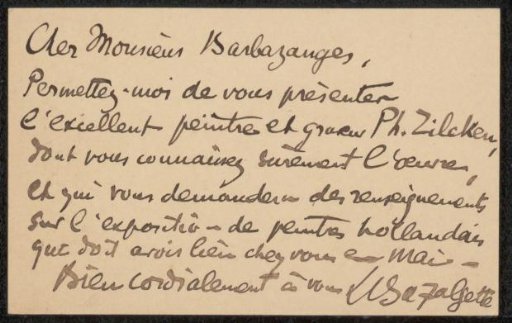 Cher Monsieur Barbazanges,
Permettez-moi de vous présenter
l'excellent peintre et graveur Ph. Zilcken,
dont vous connaissez sûrement l'œuvre,
et qui vous demandera des renseignements
sur l'exposition de peintres hollandais
qui doit avoir lieu chez vous en Mai -
Bien cordialement à vous L Bazalgette